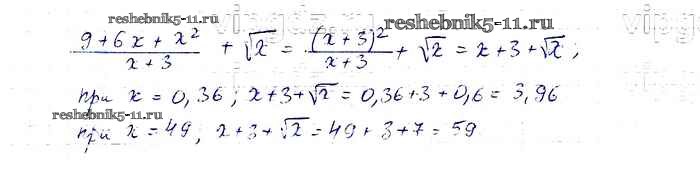 www.reshebnik5-11.ru
www.reshebnik5-11.ru
(9+6x+x²)/(x+3) + √x = (x+3)²/(x+3) + √x = x+3+√x ;
при x = 0,36 ; x+3+√x = 0,36+3+0,6 = 3,96
www.reshebnik5-11.ru
при x = 49, x+3+√x = 49+3+7 = 59